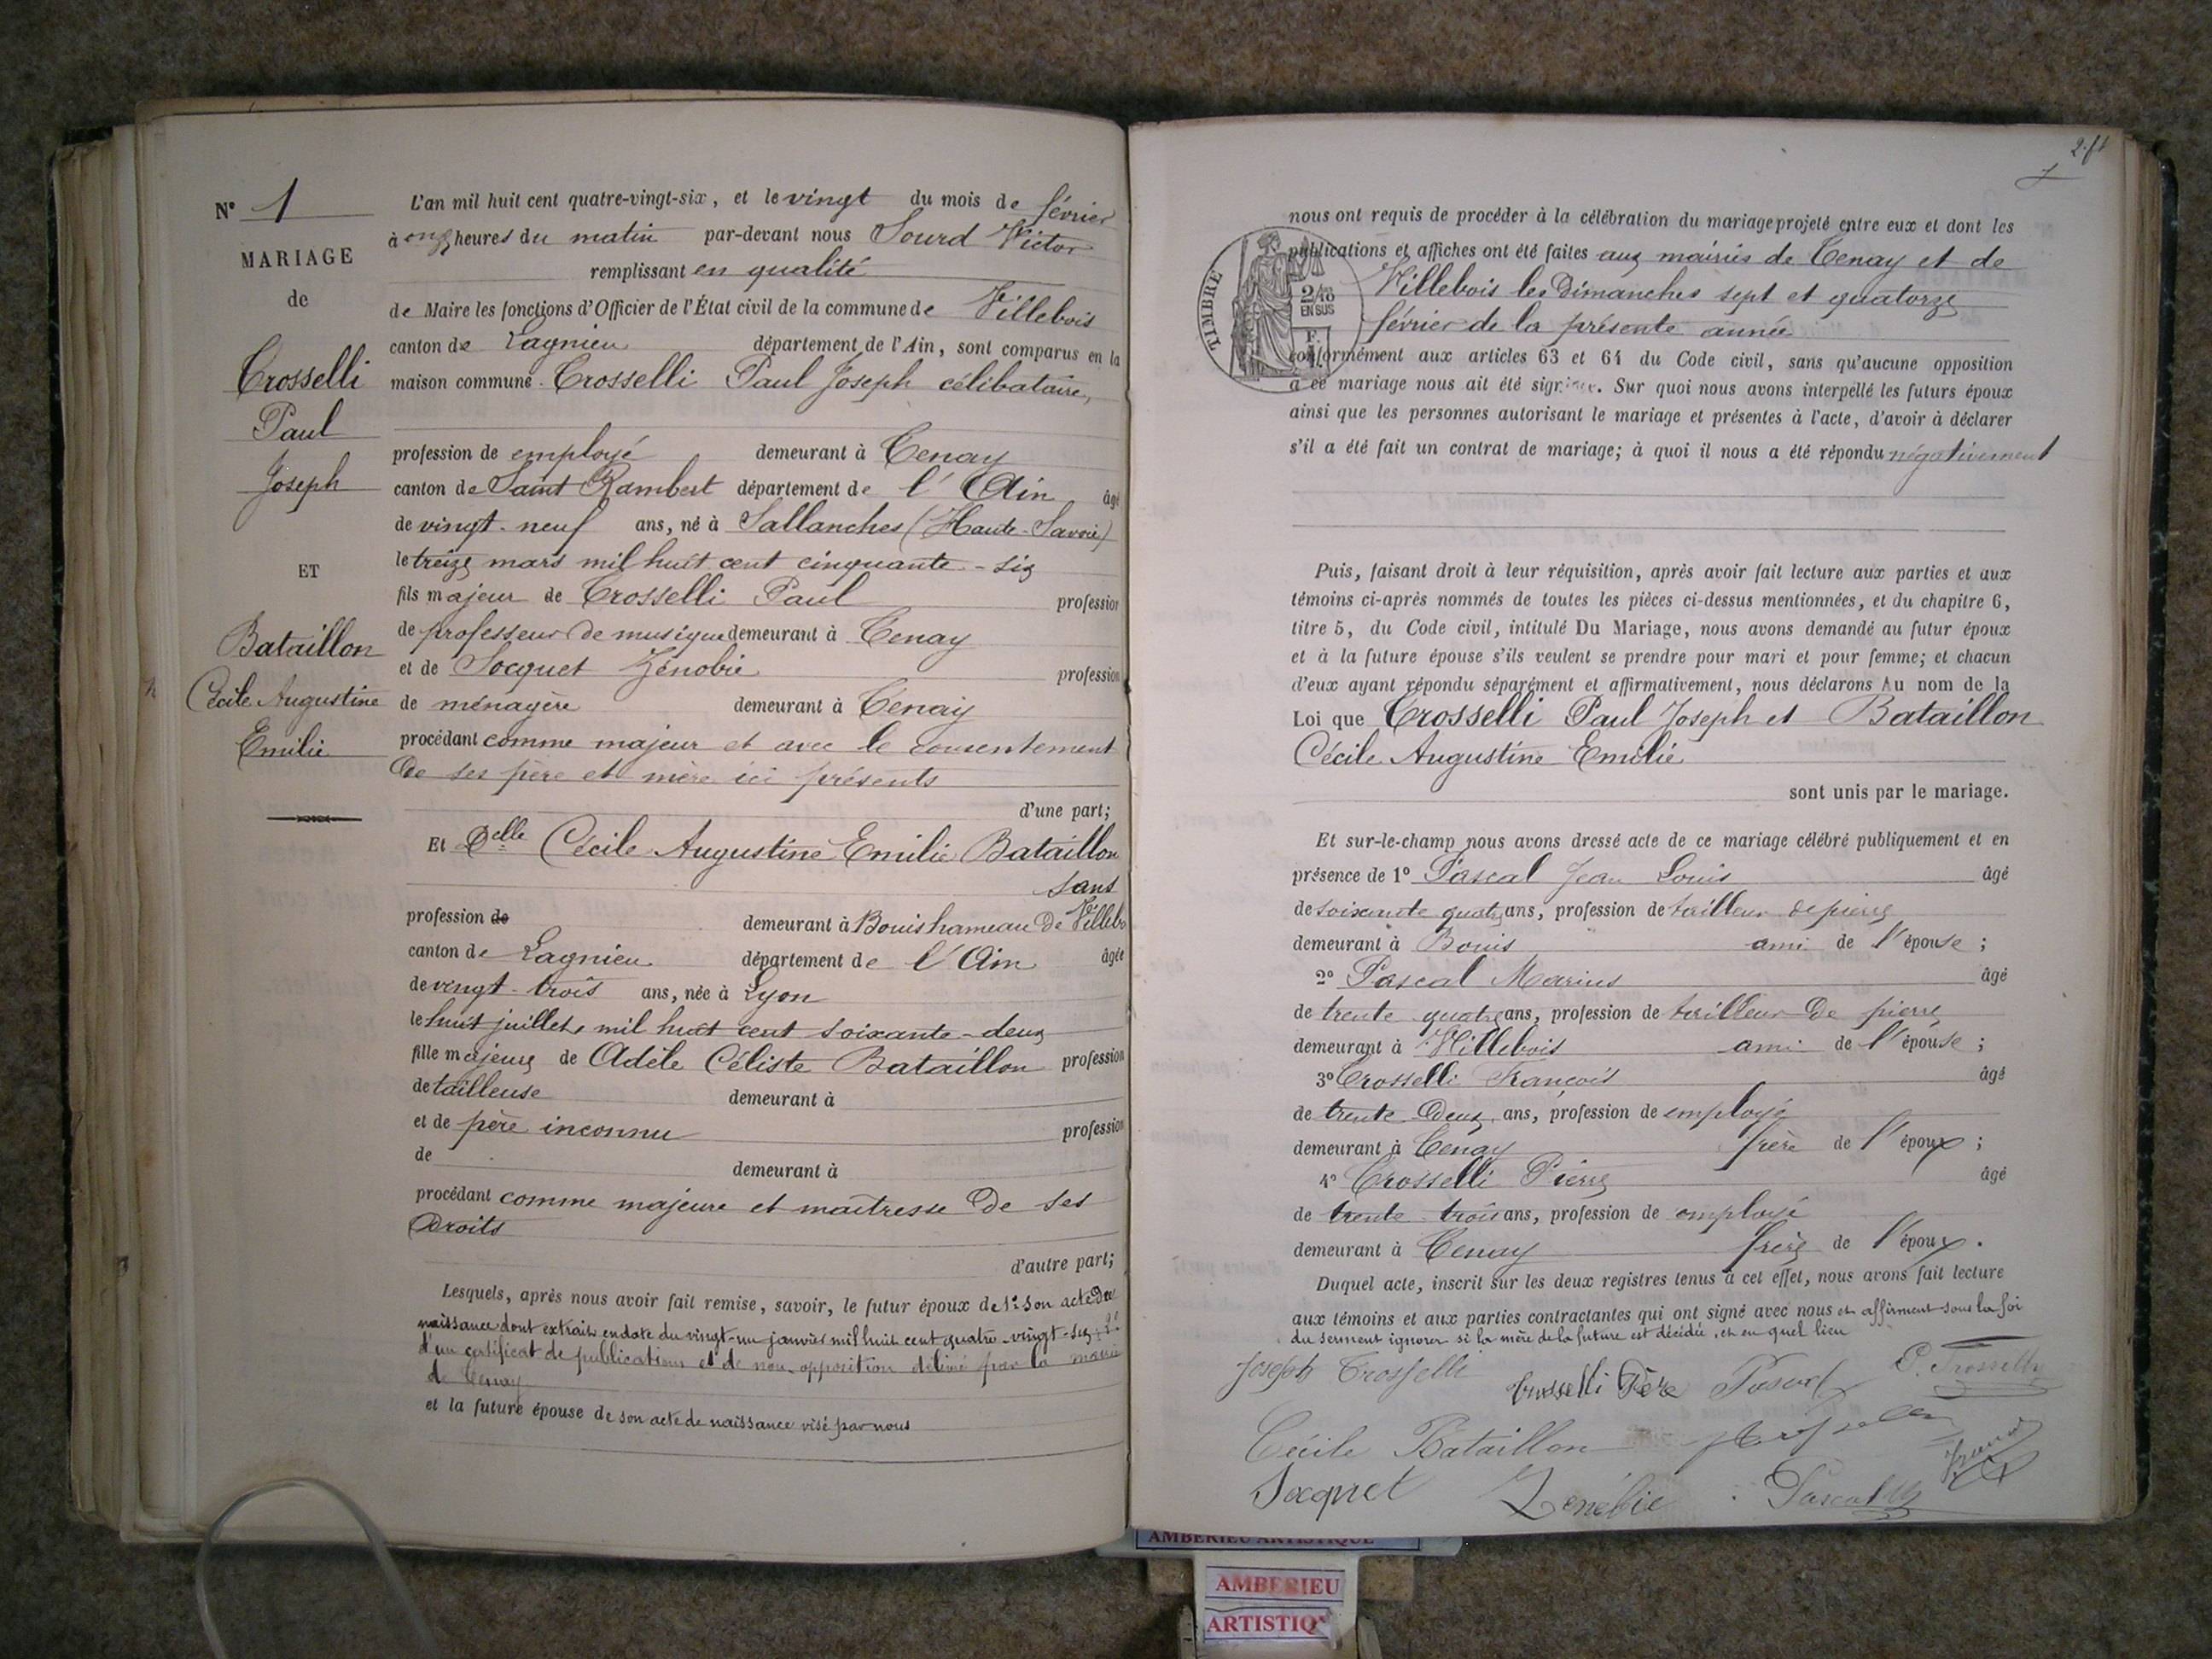 N° 1
MARIAGE
de
Trosselli
Paul
Joseph
ET
Bataillon
Cécile Augustine
Emilie
L'an mil huit cent quatre-vingt-six, et le vingt du mois de février
à onze heures du matin par-devant nous Sourd Victor
remplissant en qualité
de Maire les fonctions d'Officier de l'État civil de la commune de Villebois
canton de Lagnieu département de l'Ain, sont comparus en la
maison commune Trosselli Paul Joseph célibataire,
profession de employé demeurant à Tenay
canton de Saint Rambert département de l'Ain âgé
de vingt-neuf ans, né à Sallanches (Haute-Savoie)
le treize mars mil huit cent cinquante-six
fils majeur de Trosselli Paul profession
de professeur de musique demeurant à Tenay
et de Socquet Zénobie profession
de ménagère demeurant à Tenay
procédant comme majeur et avec le consentement
de ses père et mère ici présents
d'une part;
Et Delle Cécile Augustine Emilie Bataillon
sans
profession de demeurant à Bouis hameau de Villebo
canton de Lagnieu département de l'Ain âgée
de vingt-trois ans, née à Lyon
le huit juillet mil huit cent soixante-deux
fille majeure de Adèle Céliste Bataillon profession
de tailleuse demeurant à
et de père inconnu profession
de demeurant à
procédant comme majeure et maîtresse de ses
droits
d'autre part;
Lesquels, après nous avoir fait remise, savoir, le futur époux de 1° son acte de
naissance dont extrait en date du vingt-un janvier mil huit cent quatre-vingt-six 2°
d'un certificat de publications et de non-opposition délivré par la mairie
de Tenay
et la future épouse de son acte de naissance visé par nous
2. ft
nous ont requis de procéder à la célébration du mariage projeté entre eux et dont les
publications et affiches ont été faites aux mairies de Tenay et de
Villebois les Dimanches sept et quatorze
février de la présente année
TIMBRE
2/10
EN SUS
conformément aux articles 63 et 64 du Code civil, sans qu'aucune opposition
à ce mariage nous ait été signifiée. Sur quoi nous avons interpellé les futurs époux
ainsi que les personnes autorisant le mariage et présentes à l'acte, d'avoir à déclarer
s'il a été fait un contrat de mariage; à quoi il nous a été répondu négativement
Puis, faisant droit à leur réquisition, après avoir fait lecture aux parties et aux
témoins ci-après nommés de toutes les pièces ci-dessus mentionnées, et du chapitre 6,
titre 5, du Code civil, intitulé Du Mariage, nous avons demandé au futur époux
et à la future épouse s'ils veulent se prendre pour mari et pour femme; et chacun
d'eux ayant répondu séparément et affirmativement, nous déclarons Au nom de la
Loi que Trosselli Paul Joseph et Bataillon
Cécile Augustine Emilie
sont unis par le mariage.
Et sur-le-champ nous avons dressé acte de ce mariage célébré publiquement et en
présence de 1° Pascal Jean Louis âgé
de soixante quatre ans, profession de tailleur de pierre
demeurant à Bouis ami de l'épouse;
2° Pascal Marius âgé
de trente quatre ans, profession de tailleur de pierre
demeurant à Villebois ami de l'épouse;
3° Trosselli François âgé
de trente deux ans, profession de employé
demeurant à Tenay frère de l'époux;
4° Trosselli Pierre âgé
de trente trois ans, profession de employé
demeurant à Tenay frère de l'époux.
Duquel acte, inscrit sur les deux registres tenus à cet effet, nous avons fait lecture
aux témoins et aux parties contractantes qui ont signé avec nous et affirment sous la foi
du serment ignorer si la mère de la future est décédée, et en quel lieu
Joseph Trosselli Trosselli Père Pascal P. Trosselli
Cécile Bataillon
Socquet Zenobie Pascal M
AMBERIEU ARTISTIQUE
AMBERIEU
ARTISTIQ